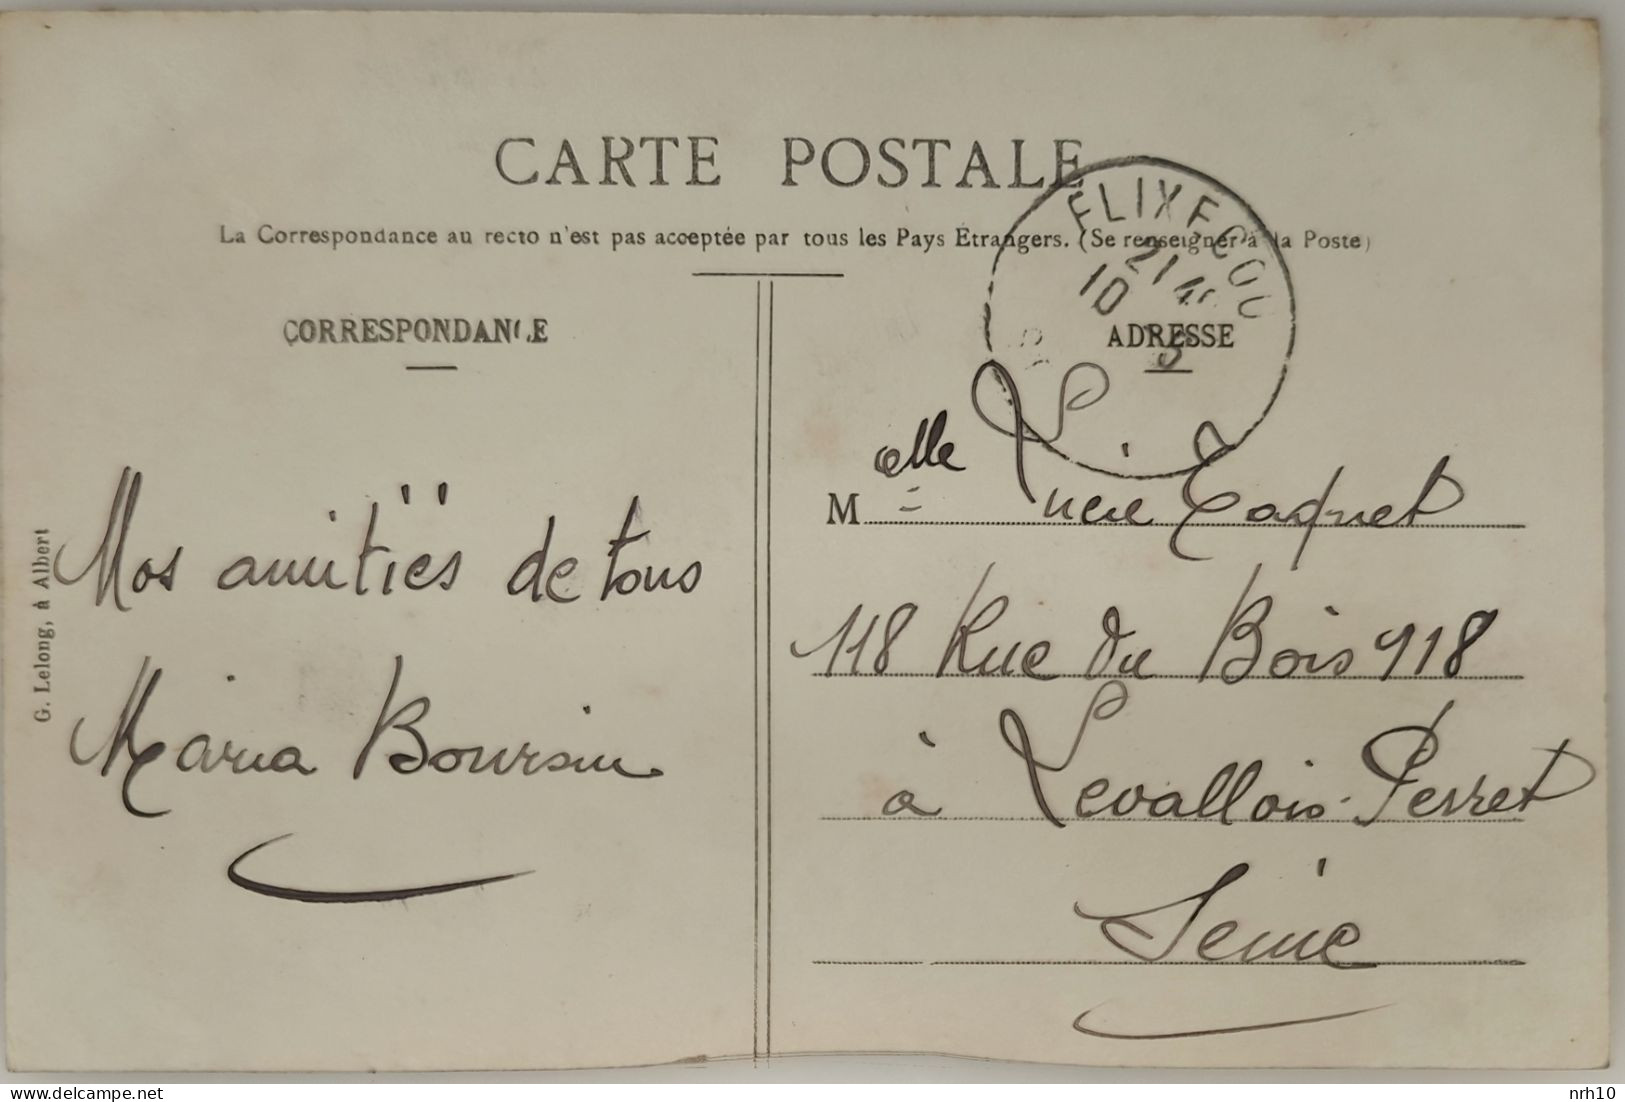 CARTE POSTALE
La Correspondance au recto n'est pas acceptée par tous les Pays Étrangers. (Se renseigner à la Poste)
FLIXECOU
21
10
CORRESPONDANCE
ADRESSE
Melle Lucie Taquet
118 Rue du Bois 118
à Levallois-Perret
Seine
Mos amitiés de tous
Maria Boursin
G. Lelong, à Albert
delcampe.net
nrh10